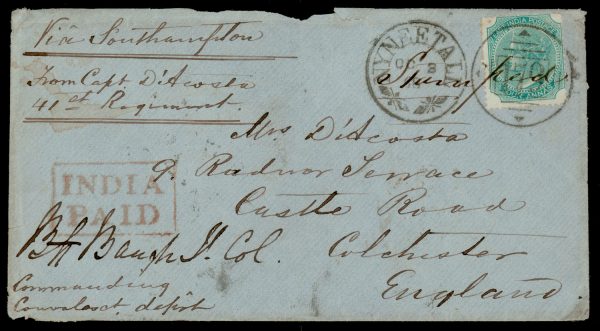 Via Southampton
From Capt D'Acosta
41st Regiment.
NYNEE TAL
Stamp paid
EAST INDIA POSTAGE
FOUR ANNAS
Mrs D'Acosta
9. Radnor Terrace
Castle Road
Colchester
England.
INDIA
PAID
Baugh Lt. Col.
Commanding
Convalesct. depôt